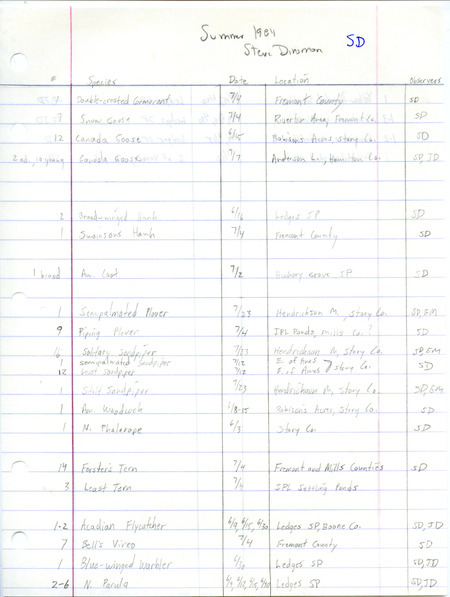 Summer 1984
Steve Dinsmore SD
# Species Date Location Observers
7 Double-crested Cormorant 7/4 Fremont County SD
7 Snow Goose 7/4 Riverton Area, Fremont Co. SD
12 Canada Goose 6/15 Robison's Acres, Story Co. SD
2 ad., 10 young Canada Goose 7/7 Anderson L., Hamilton Co. SD, JD
2 Broad-winged Hawk 6/16 Ledges SP SD
1 Swainsons Hawk 7/4 Fremont County SD
1 brood Am. Coot 7/2 Hickory Grove SP SD
1 Semipalmated Plover 7/23 Hendrickson M, Story Co. SD, EM
9 Piping Plover 7/4 IPL Ponds, Mills Co. ? SD
16 Solitary Sandpiper 7/23 Hendrickson M, Story Co. SD, EM
1 semipalmated Sandpiper 7/12 E. of Ames
12 Least Sandpiper 7/12 E. of Ames Story Co. SD
1 Stilt Sandpiper 7/23 Hendrickson M, Story Co. SD, EM
1 Am. Woodcock 6/8-15 Robison's Acres, Story Co. SD
1 N. Phalarope 6/3 Story Co. SD
14 Forster's Tern 7/4 Fremont and Mills Counties SD
3 Least Tern 7/4 IPL Settling Ponds
1-2 Acadian Flycatcher 6/9, 6/15, 6/30 Ledges SP, Boone Co. SD, JD
7 Bell's Vireo 7/4 Fremont County SD
1 Blue-winged Warbler 6/10 Ledges SP SD, JD
2-6 N. Parula Ledges SP SD, JD